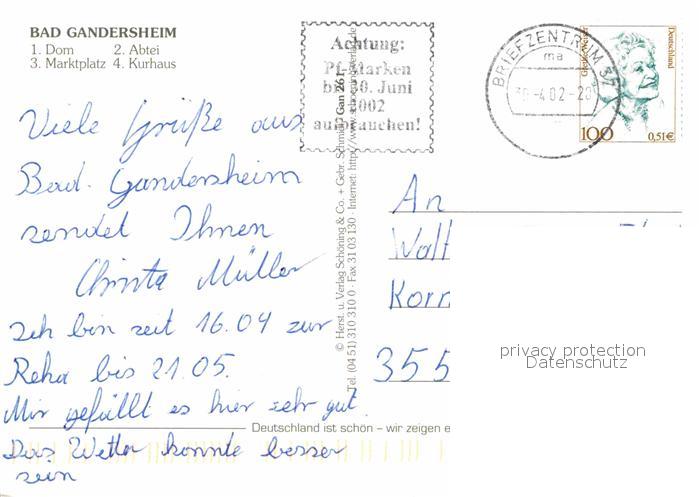 BAD GANDERSHEIM
1. Dom 2. Abtei
3. Marktplatz 4. Kurhaus
Viele Grüße aus
Bad. Gandersheim
sendet Ihnen
Christa Müller
Ich bin seit 16.04 zur
Reha bis 21.05.
Mir gefällt es hier sehr gut.
Das Wetter konnte besser
sein
Deutschland ist schön – wir zeigen e
Achtung:
Pf-Marken
bis 30. Juni
2002
aufbrauchen!
Gan 26
© Herst. u. Verlag Schöning & Co. + Gebr. Schmidt
Tel. (04 51) 310 310 0 · Fax 31 03 130 · Internet: http://www.schoening-verlag.de
BRIEFZENTRUM 37
ma
-4.02-20
Deutschland
100 0,51€
An
Walt
Korn
355
privacy protection
Datenschutz